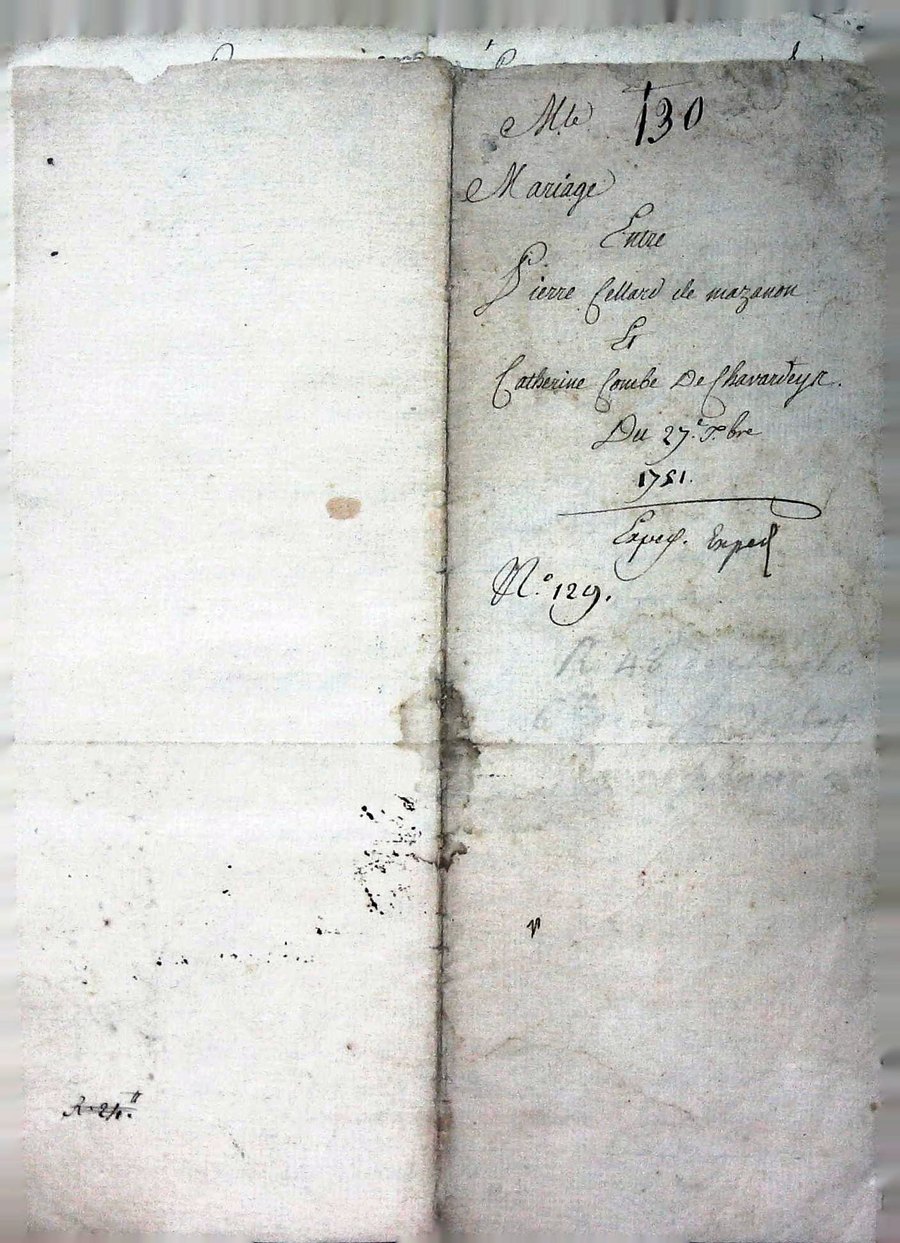 Mte 130
Mariage
Entre
Pierre Cellard de mazanon
Et
Catherine Combe De Chavardeyr.
Du 27.e 7.bre
1751.
Exped. Exped
N.o 129.
R. 24."